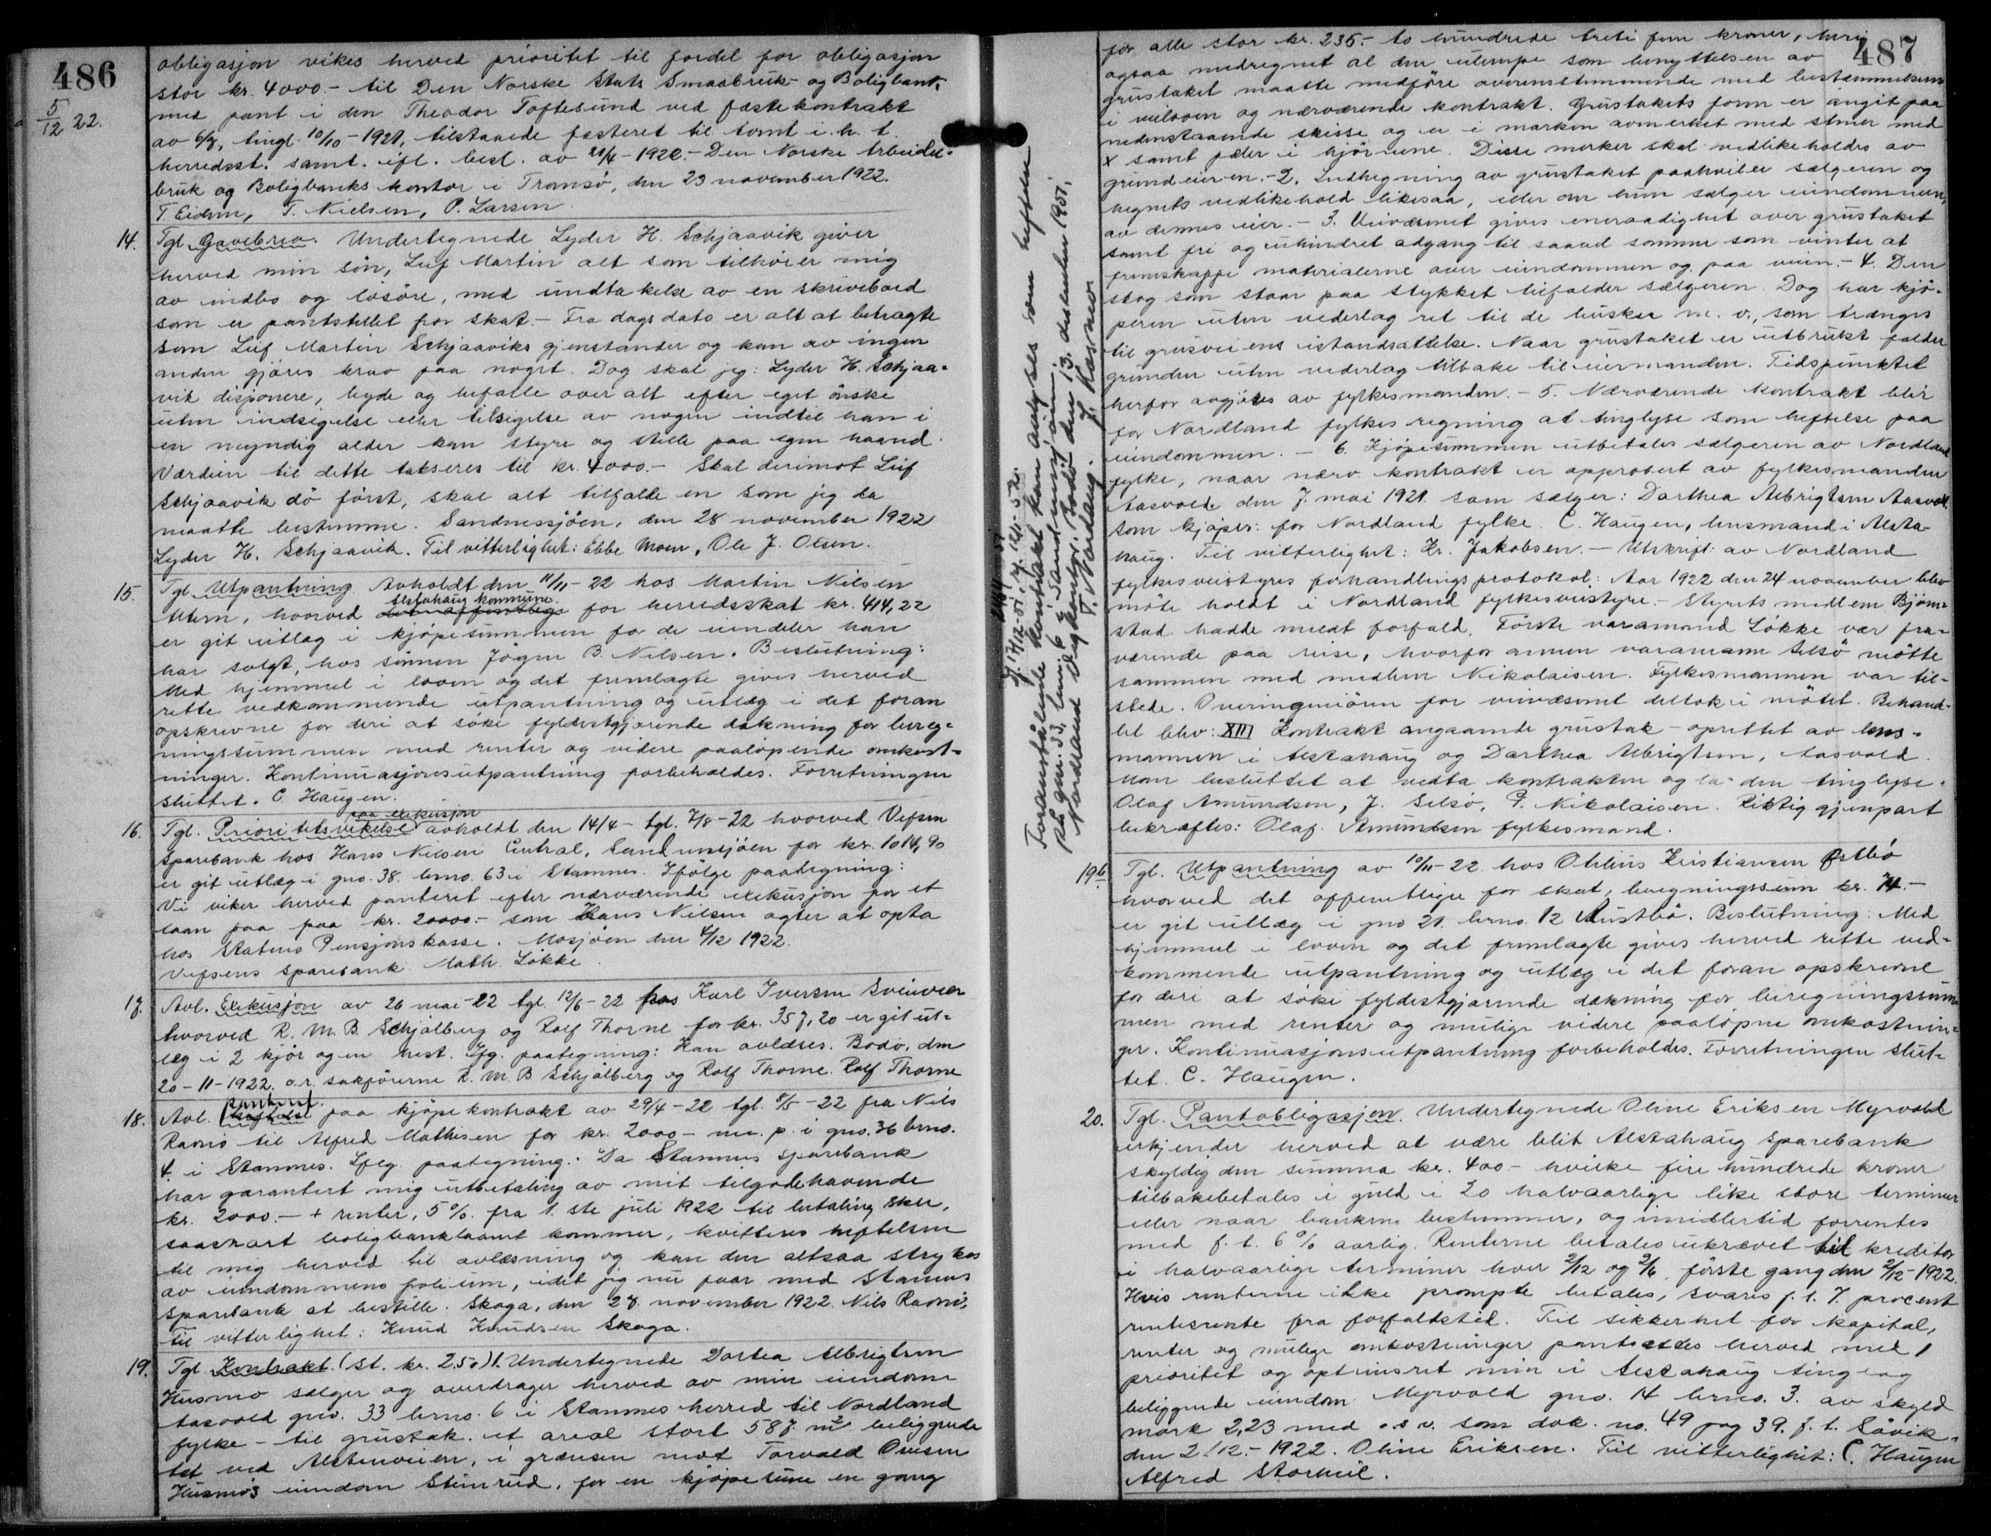 486
5/12 22.
obligasjon vikes herved prioritet til fordel for obligasjon
stor kr. 4000.- til Den Norske Stats Smaabruk- og Boligbank,
med pant i den Theodor Toftesund ved fæstekontrakt
av 6/7, tingl. 10/10-1921, tilstaaede festeret til tomt i h. t.
herredsst. samt. ifl. besl. av 21/4-1922.- Den Norske Arbeider-
bruk og Boligbanks kontor i Tromsö, den 23 november 1922
T. Eidem, T. Nielsen, P. Larsen
14. Tgl. Gavebrev. Undertegnede Lyder H. Schjaavik giver
herved min sön, Leif Martin alt som tilhörer mig
av indbo og lösöre, med undtakelse av en skrivebord
som er pantstillet for skat.- Fra dags dato er alt at betragte
som Leif Martin Schjaaviks gjenstander og kan av ingen
anden gjöres krav paa noget. Dog skal jeg: Lyder H. Schjaa-
vik disponere, byde og befalle over alt efter eget önske
uten indsigelse eller tilsigelse av nogen indtil han i
en myndig alder kan styre og stelle paa egen haand.
Værdien til dette takseres til kr. 4000.- Skal derimot Leif
Schjaavik dö först, skal alt tilfalle en som jeg da
maatte bestemme. Sandnessjöen, den 28 november 1922
Lyder H. Schjaavik. Til vitterlighet: Ebbe Moen, Ole J. Olsen.
15. Tgl. Utpantning Avholdt den 11/11-22 hos Martin Nilsen
Alstahaug kommune
hvorved for herredsskat kr. 414,22
er git utlæg i kjöpesummen for de eiendeler han
har solgt hos sönnen Jögen B. Nilsen. Beslutning:
Med hjemmel i loven og det fremlagte gives herved
rette vedkommende utpantning og utlæg i det foran
opskrevne for deri at söke fyldestgjörende dækning for bereg-
ningssummen med renter og videre paalöpende omkost-
ninger. Kontinuasjonsutpantning forbeholdes. Forretningen
sluttet. C. Haugen.
paa eksekusjon
16. Tgl. Prioritetsvikelse avholdt den 14/4- tgl. 7/8-22 hvorved Vefsen
Sparebank hos Hans Nilsen Central, Sandnessjöen for kr. 1014,90
er git utlæg i gno. 38 brno. 63 i Stamnes. Ifölge paategning:
Vi viker herved panteret efter nærværende eksekusjon for et
laan paa paa kr. 20000.- som Hans Nilsen agter at opta
hos Statens Pensjonskasse. Mosjöen den 4/12 1922.
Vefsens Sparebank Math. Lökke
17. Avl. Eksekusjon av 26 mai-22 tgl. 12/6-22 hos Karl Iversen Sveinvær
hvorved R. M. B. Schjölberg og Rolf Thorne for kr. 357,20 er git ut-
læg i 2 kjör og en hest. Ifg. paategning: Kan avlæses. Bodö, den
20-11-1922. o.r. sakförerne R. M. B Schjölberg og Rolf Thorne. Rolf Thorne
panteret
18. Avl. heftelse paa kjöpekontrakt av 29/4-22 tgl. 8/5-22 fra Nils
Ravnö til Alfred Mathisen for kr. 2000.- m. p. i gno. 36 brno.
4 i Stamnes. Ifg. paategning: Da Stamnes sparebank
har garantert mig utbetaling av mit tilgodehavende
kr. 2000.- + renter, 5%. fra 1.ste juli 1922 til betaling skeer,
saasnart boligbanklaanet kommer, kvitteres heftelsen
til mig herved til avlæsning og kan den altsaa strykes
av eiendommens folium, idet jeg nu faar med Stamnes
sparebank at bestille. Skaga, den 27. november 1922. Nils Ravnö,
Til vitterlighet: Knud Knudsen Skaga.
19. Tgl. Kontrakt. (St. kr. 2.50) 1. Undertegnede Dortea Albrigtsen
Husmo sælger og overdrager herved av min eiendom
Aasvold gno. 33 brno. 6 i Stamnes herred til Nordland
fylke - til grustak et areal stort 587 m² beliggende
tet ved Alstenveien, i grænsen mot Torvald Ovesen
Husmos eiendom Stenrud, for en kjöpesum en gang
J. 17/12-51, y. 141-52.
Foranstående kontrakt kan avlyses som heftelse
på gnr. 33, bnr. 6 i Sandnessjöen.
Nordland Vegkontor, Bodö den 13. desember 1951,
T. Nordaug.
487
for alle stor kr. 235.- to hundrede treti fem kroner, heri
ogsaa medregnet al den ulempe som benyttelsen av
grustaket maatte medföre overensstemmende med bestemmelsene
i veiloven og nærværende kontrakt. Grustakets form er angit paa
nedenstaaende skisse og er i marken avmerket med stener med
X samt pæler i hjörnene. Disse merker skal vedlikeholdes av
grundeieren.- 2. Indhegning av grustaket paahviler sælgeren og
hegnets vedlikehold likesaa, eller om hun sælger eiendommen,
av dennes eier.- 3. Veivæsenet gives eneraadighet over grustaket
samt fri og uhindret adgang til saavel sommer som vinter at
fremskaffe materialerne over eiendommen og paa veien.- 4. Den
skog som staar paa stykket tilfalder sælgeren. Dog har kjö-
peren uten vederlag ret til de busker m. v., som trænges
til grusveiens istandsættelse. Naar grustaket er utbrukt falder
grunden uten vederlag tilbake til eiermanden. Tidspunktet
herfor avgjöres av fylkesmanden.- 5. Nærværende kontrakt blir
for Nordland fylkes regning at tinglyse som heftelse paa
eiendommen.- 6. Kjöpesummen utbetales sælgeren av Nordland
fylke, naar nærv. kontrakt er approbert av fylkesmanden
Aasvold den 7. mai 1921. som sælger: Darthea Albrigtsen Aasvold.
Som kjöper: for Nordland fylke. C. Haugen, lensmand i Alsta-
haug. Til vitterlighet: Kr. Jakobsen.- Utskrift: av Nordland
fylkesveistyres forhandlingsprotokol: Aar 1922 den 24 november blev
möte holdt i Nordland fylkesveistyre.- Styrets medlem Björn-
stad hadde meldt forfald. Förste varamand Lökke var fra-
værende paa reise, hvorfor annen varamann Selsö mötte
sammen med medlem Nikolaisen. Fylkesmannen var til-
stede. Overingeniören for veivæsenet deltok i mötet. Behand-
let blev: XIII Kontrakt angaaende grustak - oprettet av lens-
mannen i Alstahaug og Darthea Albrigtsen, Aasvold.
Man besluttet at vedta kontrakten og la den tinglyse.
Olaf Amundsen, J. Selsö, P. Nikolaisen. Riktig gjenpart
bekræftes: Olaf Amundsen fylkesmand.
19b. Tgl. Utpantning av 10/11-22 hos Ohlius Kristiansen Østbö
hvorved det offentlige for skat, beregningssum kr. 74.-
er git utlæg i gno 21. brno. 12 Austbö. Beslutning: Med
hjemmel i loven og det fremlagte gives herved rette ved-
kommende utpantning og utlæg i det foran opskrevne
for deri at söke fyldestgjörende dækning for beregningssum-
men med renter og mulige videre paalöpne omkostnin-
ger. Kontinuasjonsutpantning forbeholdes. Forretningen slut-
tet. C. Haugen.
20. Tgl. Pantobligasjon. Undertegnede Oline Eriksen Myrvold
erkjender herved at være blit Alstahaug Sparebank
skyldig den summa kr. 400- hvilke fire hundrede kroner
tilbakebetales i guld i 20 halvaarlige like store terminer
eller naar banken bestemmer, og imidlertid forrentes
med f. t. 6% aarlig. Renterne betales ukrævet til kreditor
i halvaarlige terminer hver 2/12 og 2/6, förste gang den 2/12-1922.
Hvis renterne ikke prompte betales, svares f. t. 7. procent
rentesrente fra forfaldstid. Til sikkerhet for kapital,
renter og mulige omkostninger pantsættes herved med 1
prioritet og optrinsret min i Alstahaug tinglag
beliggende eiendom Myrvold gno. 14 brno. 3. av skyld
mark 2,23 med o.s.v. som dok. no. 49 pag 39. f. t. Søvik
den 2/12.-1922. Oline Eriksen. Til vitterlighet: C. Haugen
Alfred Stormel.